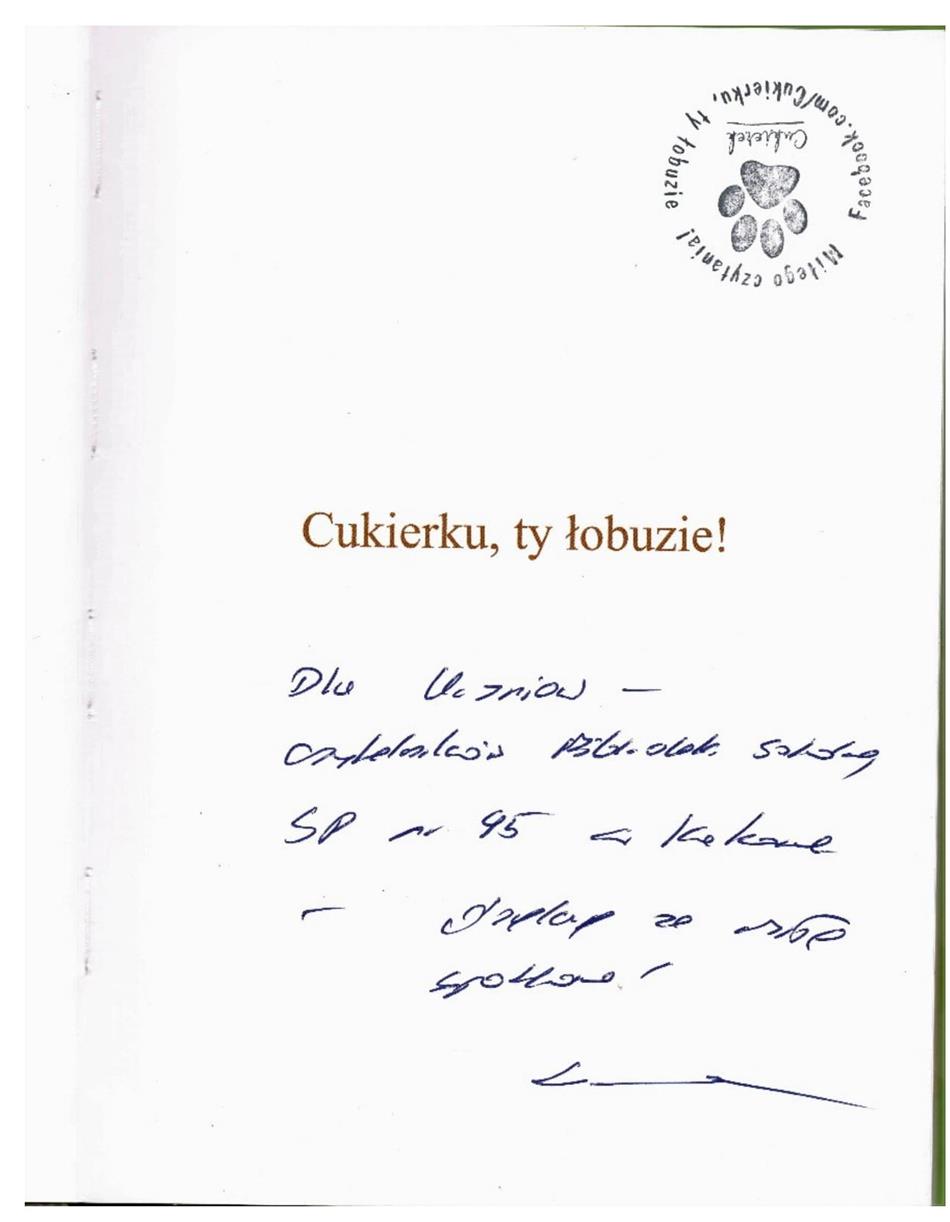 Facebook.com/Cukierku, ty łobuzie
Cukierek
Miłego czytania!
Cukierku, ty łobuzie!
Dla Uczniów –
czytelników Biblioteki Szkolnej
SP nr 95 w Krakowie
– dziękuję za miłe
spotkanie!